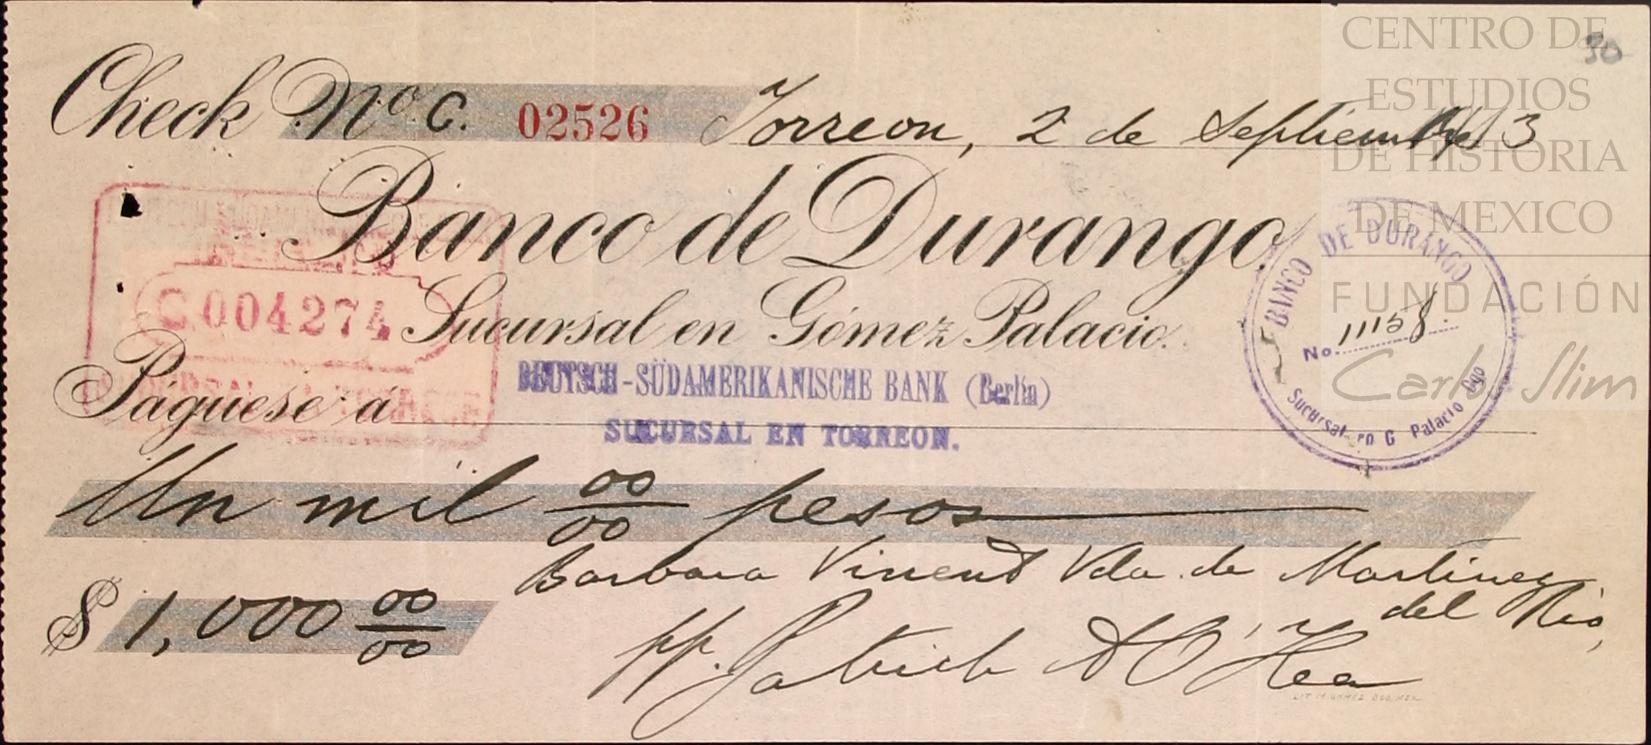 CENTRO DE
ESTUDIOS
DE HISTORIA
DE MEXICO
FUNDACIÓN
Carlos Slim
30
Check No. C. 02526 Torreon, 2 de Septiembre 1913
Banco de Durango
Sucursal en Gómez Palacio.
C 004274
Páguese á
DEUTSCH-SÜDAMERIKANISCHE BANK (Berlín)
SUCURSAL EN TORREON.
BANCO DE DURANGO
No. 11158.
Sucursal en G. Palacio Dgo
Un mil 00/00 pesos
$ 1,000 00/00
Barbara Vincent Vda. de Martinez
del Rio,
pp. Patrick A O'Hea